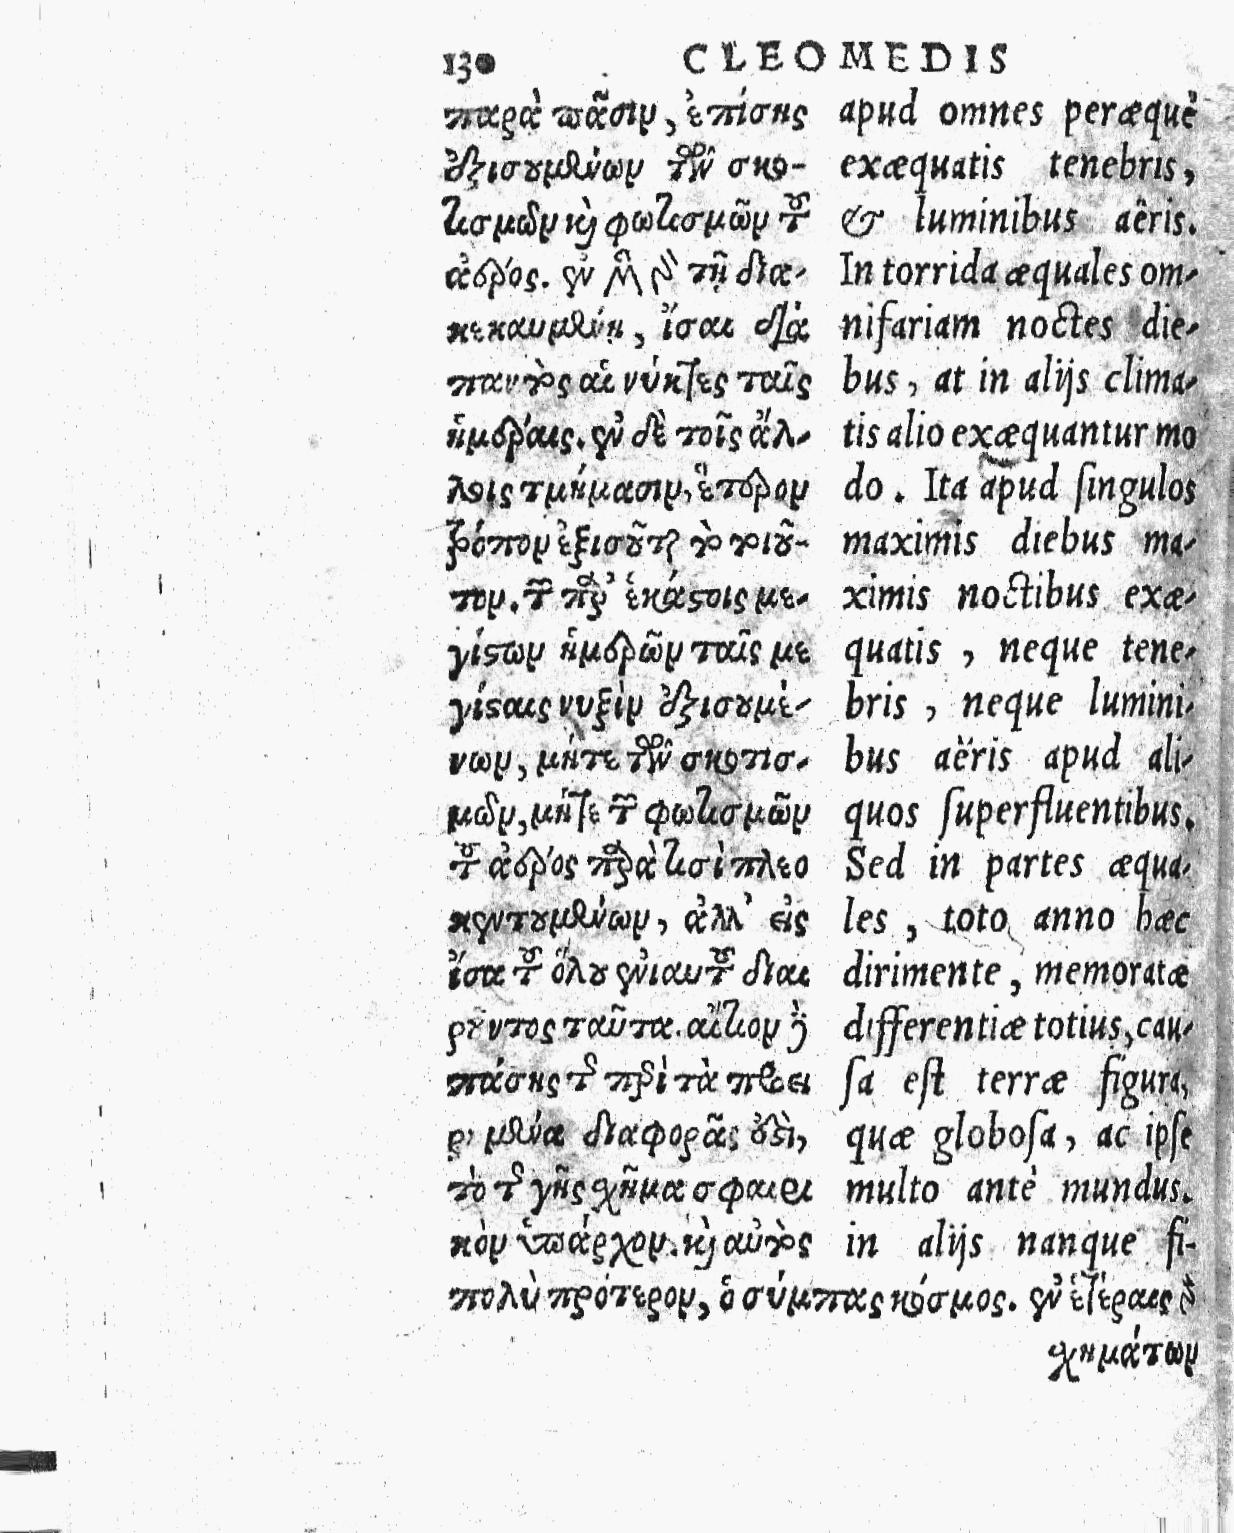 130 CLEOMEDIS
παρὰ πᾶσιν, ἐπίσης
ἐξισουμένων τῶν σκο-
τισμῶν καὶ φωτισμῶν τοῦ
ἀέρος. ἐν μὲν γὰρ τῇ δια-
κεκαυμένῃ, ἴσαι διὰ
παντὸς αἱ νύκτες ταῖς
ἡμέραις. ἐν δὲ τοῖς ἄλ-
λοις τμήμασιν, ἕτερον
τρόπον ἐξισοῦται τὸ τοιοῦ-
τον. τῶν παρ' ἑκάστοις με-
γίστων ἡμερῶν ταῖς με
γίσταις νυξὶν ἐξισουμέ-
νων, μήτε τῶν σκοτισ-
μῶν, μήτε τῶν φωτισμῶν
τοῦ ἀέρος παρὰ τισὶ πλεο
νεκτουμένων, ἀλλ' εἰς
ἴσα τοῦ ὅλου ἐνιαυτοῦ διαι
ροῦντος ταῦτα. αἴτιον δὲ
πάσης τῆς περὶ τὰ προει
ρημένα διαφορᾶς ἐστὶ,
τὸ τῆς γῆς σχῆμα σφαιρι
κὸν ὑπάρχον. καὶ αὐτὸς
πολὺ πρότερον, ὁ σύμπας κόσμος. ἐν ἑτέραις γὰρ
σχημάτων
apud omnes peræquè
exæquatis tenebris,
& luminibus aëris.
In torrida æquales om-
nifariam noctes die-
bus, at in alijs clima-
tis alio exæquantur mo
do. Ita apud ſingulos
maximis diebus ma-
ximis noctibus exæ-
quatis, neque tene-
bris, neque lumini-
bus aëris apud ali-
quos ſuperfluentibus.
Sed in partes æqua-
les, toto anno hæc
dirimente, memoratæ
differentiæ totius, cau-
ſa eſt terræ figura,
quæ globoſa, ac ipſe
multo antè mundus.
in alijs nanque fi-